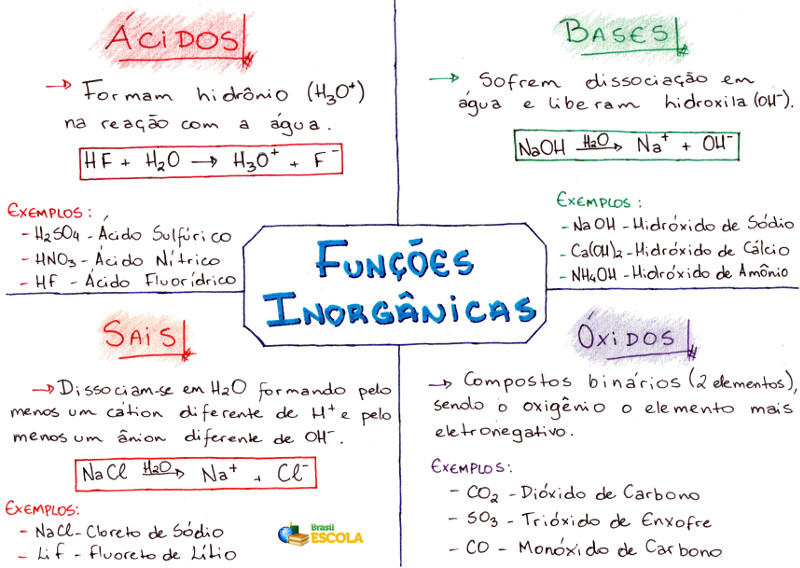 ÁCIDOS
→ Formam hidrônio (H₃O⁺)
na reação com a água.
HF + H₂O → H₃O⁺ + F⁻
EXEMPLOS:
- H₂SO₄ - Ácido Sulfúrico
- HNO₃ - Ácido Nítrico
- HF - Ácido Fluorídrico
BASES
→ Sofrem dissociação em
água e liberam hidroxila (OH⁻).
NaOH H₂O→ Na⁺ + OH⁻
EXEMPLOS:
- NaOH - Hidróxido de Sódio
- Ca(OH)₂ - Hidróxido de Cálcio
- NH₄OH - Hidróxido de Amônio
FUNÇÕES
INORGÂNICAS
SAIS
→ Dissociam-se em H₂O formando pelo
menos um cátion diferente de H⁺ e pelo
menos um ânion diferente de OH⁻.
NaCl H₂O→ Na⁺ + Cl⁻
EXEMPLOS:
- NaCl - Cloreto de Sódio
- LiF - Fluoreto de Lítio
Brasil
ESCOLA
ÓXIDOS
→ Compostos binários (2 elementos),
sendo o oxigênio o elemento mais
eletronegativo.
EXEMPLOS:
- CO₂ - Dióxido de Carbono
- SO₃ - Trióxido de Enxofre
- CO - Monóxido de Carbono